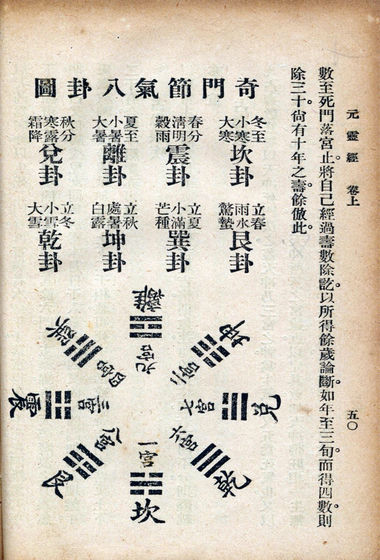 元靈經 卷上 五〇
數至死門落宮止。將自己經過壽數除訖。以所得餘歲論斷。如年至三旬。而得四數。則
除三十。尚有十年之壽。餘倣此。
奇門節氣八卦圖
冬至
小寒
大寒
坎卦
春分
清明
穀雨
震卦
夏至
小暑
大暑
離卦
秋分
寒露
霜降
兌卦
立春
雨水
驚蟄
艮卦
立夏
小滿
芒種
巽卦
立秋
處暑
白露
坤卦
立冬
小雪
大雪
乾卦
離
九宮
坤
二宮
兌
七宮
乾
六宮
坎
一宮
艮
八宮
震
三宮
巽
四宮